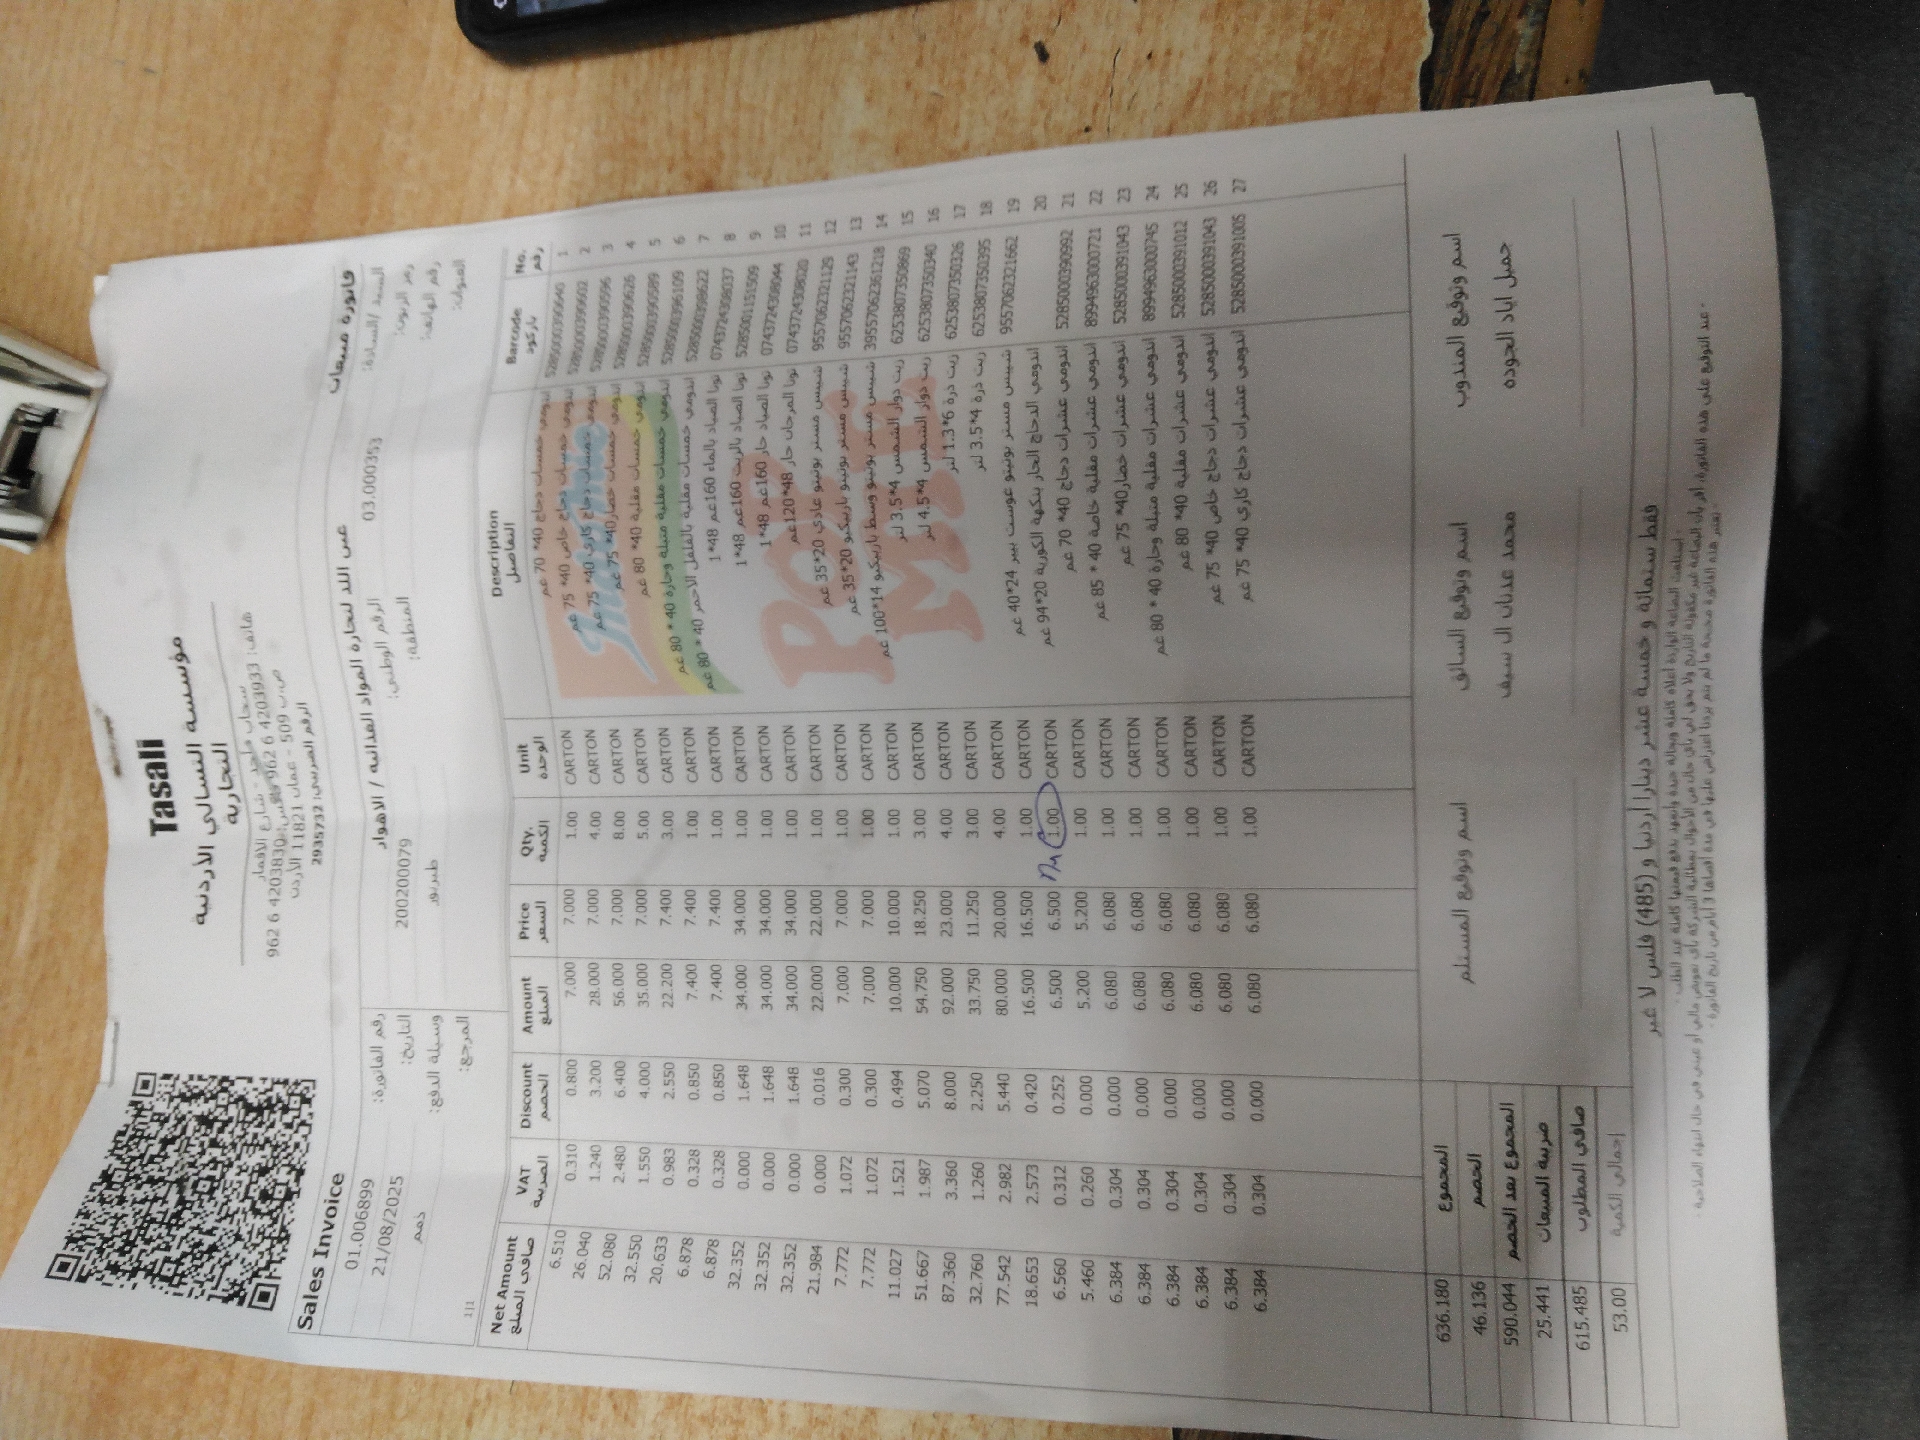 Tasali
مؤسسة التسالي الأردنية
التجارية
سحاب - شارع الأقمار
هاتف: 4203933 6 962 فاكس: 4203830 6 962
ص.ب 509 - عمان 11821 الأردن
الرقم الضريبي: 2935732
Sales Invoice فاتورة مبيعات
01.006899 رقم الفاتورة: عبى الله لتجارة المواد الغذائية / الاهوار السيد /السادة:
21/08/2025 التاريخ: 200200079 الرقم الوطني: 03.000353 رمز الزبون:
ذمم وسيلة الدفع: طبربور المنطقة: رقم الهاتف:
1|1 المرجع: العنوان:
Net Amount VAT Discount Amount Price Qty. Unit Description Barcode No.
صافي المبلغ الضريبة الخصم المبلغ السعر الكمية الوحدة التفاصيل باركود رقم
6.510 0.310 0.800 7.000 7.000 1.00 CARTON اندومي خمسات دجاج 40* 70 غم 5285000390640 1
26.040 1.240 3.200 28.000 7.000 4.00 CARTON اندومي خمسات دجاج خاص 40* 75 غم 5285000390602 2
52.080 2.480 6.400 56.000 7.000 8.00 CARTON اندومي خمسات دجاج كاري 40* 75 غم 5285000390596 3
32.550 1.550 4.000 35.000 7.000 5.00 CARTON اندومي خمسات خضار 40* 75 غم 5285000390626 4
20.633 0.983 2.550 22.200 7.400 3.00 CARTON اندومي خمسات مقلية 40* 80 غم 5285000390589 5
6.878 0.328 0.850 7.400 7.400 1.00 CARTON اندومي خمسات مقلية متبلة وحارة 40 * 80 غم 5285000396109 6
6.878 0.328 0.850 7.400 7.400 1.00 CARTON اندومي خمسات مقلية بالفلفل الاحمر 40 * 80 غم 5285000398622 7
32.352 0.000 1.648 34.000 34.000 1.00 CARTON تونا الصياد بالماء 160غم 48*1 074372438037 8
32.352 0.000 1.648 34.000 34.000 1.00 CARTON تونا الصياد بالزيت 160غم 48*1 5285001151509 9
32.352 0.000 1.648 34.000 34.000 1.00 CARTON تونا الصياد حار 160غم 48*1 074372438044 10
21.984 0.000 0.016 22.000 22.000 1.00 CARTON تونا المرجان حار 48*120غم 074372438020 11
7.772 1.072 0.300 7.000 7.000 1.00 CARTON شيبس مستر بوتيتو عادي 20*35 غم 9557062321129 12
7.772 1.072 0.300 7.000 7.000 1.00 CARTON شيبس مستر بوتيتو باربيكيو 20*35 غم 9557062321143 13
11.027 1.521 0.494 10.000 10.000 1.00 CARTON شيبس مستر بوتيتو وسط باربيكيو 14*100 غم 3955706236121​8 14
51.667 1.987 5.070 54.750 18.250 3.00 CARTON زيت دوار الشمس 4*3.5 لتر 6253807350869 15
87.360 3.360 8.000 92.000 23.000 4.00 CARTON زيت دوار الشمس 4*4.5 لتر 6253807350340 16
32.760 1.260 2.250 33.750 11.250 3.00 CARTON زيت ذرة 6*1.3 لتر 6253807350326 17
77.542 2.982 5.440 80.000 20.000 4.00 CARTON زيت ذرة 4*3.5 لتر 6253807350395 18
18.653 2.573 0.420 16.500 16.500 1.00 CARTON شيبس مستر بوتيتو غوست بيبر 24*40 غم 9557062321662 19
6.560 0.312 0.252 6.500 6.500 1.00 CARTON اندومي الدجاج الحار بنكهة الكورية 20*94 غم 20
5.460 0.260 0.000 5.200 5.200 1.00 CARTON اندومي عشرات دجاج 40* 70 غم 5285000390992 21
6.384 0.304 0.000 6.080 6.080 1.00 CARTON اندومي عشرات مقلية خاصة 40 * 85 غم 8994963000721 22
6.384 0.304 0.000 6.080 6.080 1.00 CARTON اندومي عشرات خضار 40* 75 غم 5285000391043 23
6.384 0.304 0.000 6.080 6.080 1.00 CARTON اندومي عشرات مقلية متبلة وحارة 40 * 80 غم 8994963000745 24
6.384 0.304 0.000 6.080 6.080 1.00 CARTON اندومي عشرات مقلية 40* 80 غم 5285000391012 25
6.384 0.304 0.000 6.080 6.080 1.00 CARTON اندومي عشرات دجاج خاص 40* 75 غم 5285000391043 26
6.384 0.304 0.000 6.080 6.080 1.00 CARTON اندومي عشرات دجاج كاري 40* 75 غم 5285000391005 27
Indomie
POP MIE
636.180 المجموع
46.136 الخصم
590.044 المجموع بعد الخصم
25.441 ضريبة المبيعات
615.485 صافي المطلوب
53.00 إجمالي الكمية
اسم وتوقيع المستلم اسم وتوقيع السائق اسم وتوقيع المندوب
محمد عدنان ال سيف جميل اياد الجوده
فقط ستمائة و خمسة عشر دينارا أردنيا و (485) فلس لا غير